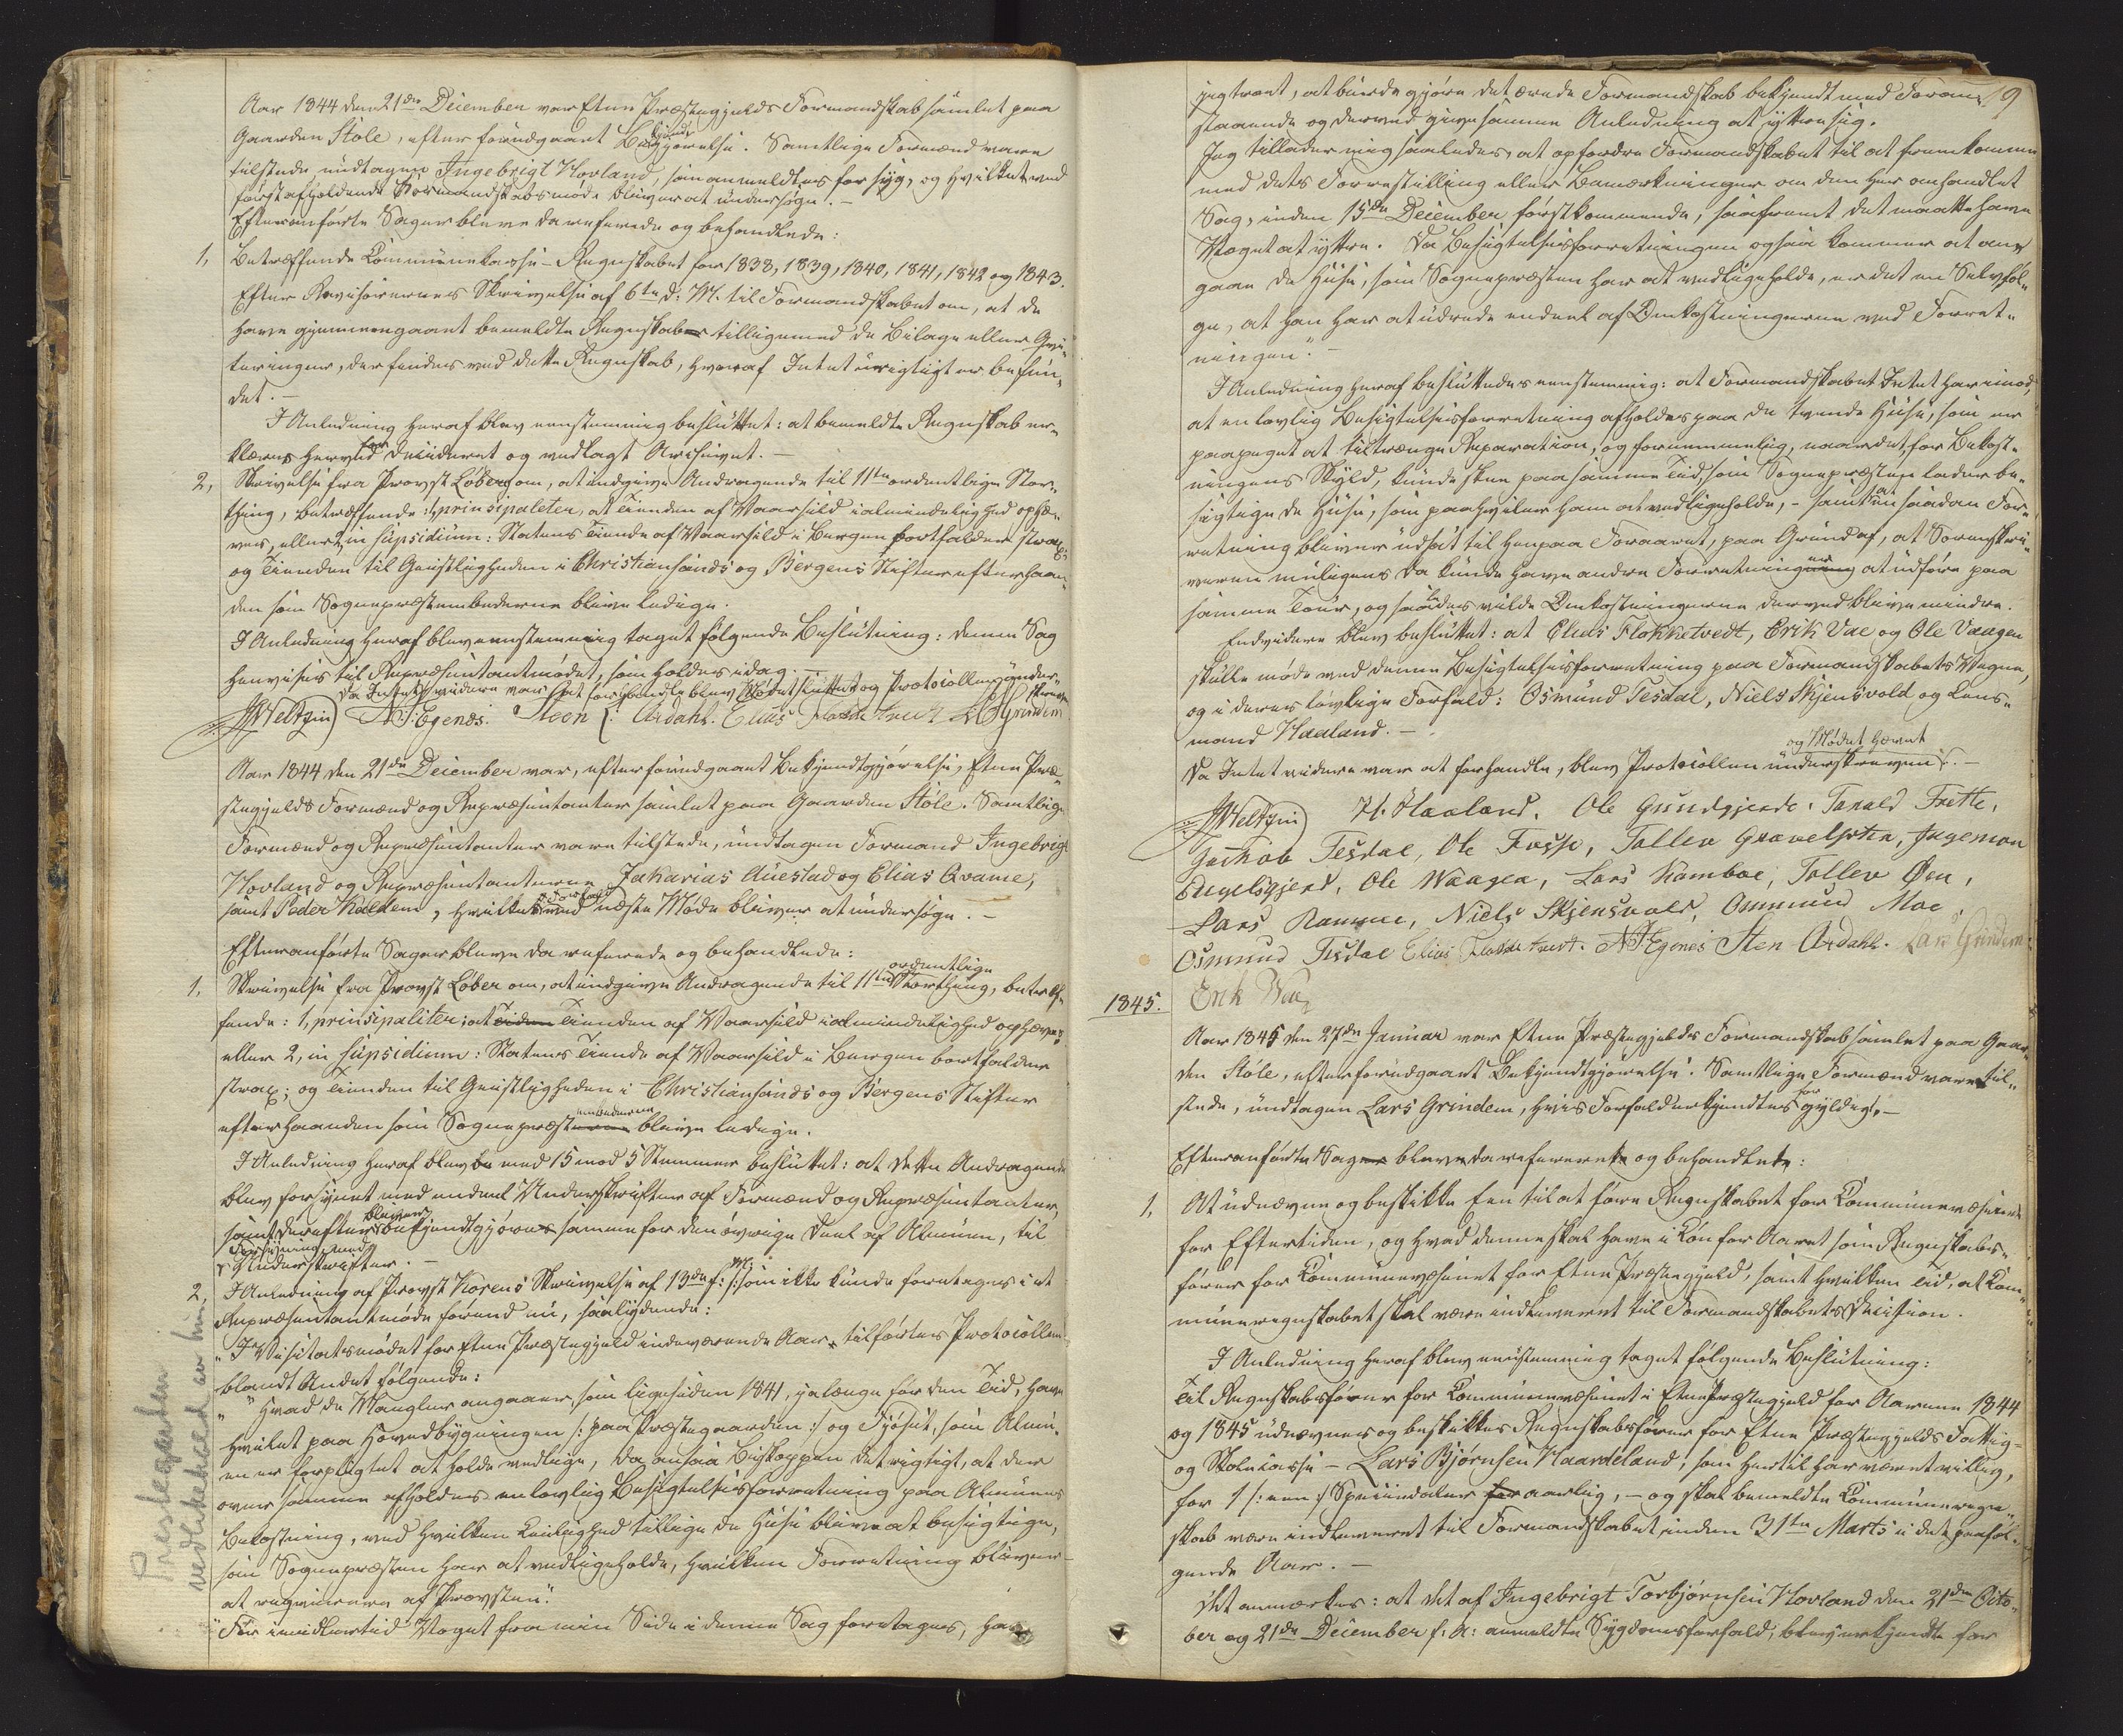 Aar 1844 den 21de December var Etne Præstegjelds Formandskab samlet paa
Gaarden Støle, efter forudgaaet Bekjendtgjørelse. Samtlige Formænd vare
tilstede undtagen Ingebrigt Hovland, som anmeldtes for syg, og hvilket ved
først afholdende Formandskabsmøde bliver at undersøge. –
Efteranførte Sager bleve da refererede og behandlede:
1, Betræffende Communekasse-Regnskabet for 1838, 1839, 1840, 1841, 1842 og 1843.
Efter Revisorernes Skrivelse af 6te d: M. til Formandskabet om, at de
have gjennemgaaet bemeldte Regnskaber tilligemed de Bilage eller Qvi-
teringer, der findes ved dette Regnskab, hvoraf Intet urigtigt er befun-
det. –
I Anledning heraf blev eenstemmig besluttet: at bemeldte Regnskab er-
klæres herved for decideret og vedlagt Archivet. –
2, Skrivelse fra Provst Løberg om, at indgive Andragende til 11te ordentlige Stor-
thing, betræffende: 1, prinsipaleter, at Tienden af Vaarsild i almindelighed ophæ-
ves, eller 2, in supsidium: Statens Tiende af Vaarsild i Bergen bortfalder strax;
og Tienden til Geistligheden i Christiansands og Bergens Stifter efterhaan-
den som Sognepræstembederne blive ledige.
I Anledning heraf blev eenstemmig taget følgende Beslutning: denne Sag
henvises til Repræsentantmødet, som holdes idag. –
Da Intet videre var at forhandle blev Mødet sluttet og Protocollen under-
skreven
JWeltzin N. T. Egenes. Steen Ardahl. Elias Flokketvedt L Grindem
Aar 1844 den 21de December var, efter forudgaaet Bekjendtgjørelse, Etne Præ-
stegjelds Formænd og Repræsentanter samlet paa Gaarden Støle. Samtlige
Formænd og Repræsentanter vare tilstede, undtagen Formand Ingebrigt
Hovland og Repræsentanterne Zakarias Auestad og Elias Qvame,
samt Peder Kalden, hvilkes Forfald ved næste Møde bliver at undersøge. –
Efteranførte Sager bleve da refererede og behandlede:
1, Skrivelse fra Provst Løber om, at indgive Andragende til 11te ordentlige Storthing, betræf-
fende: 1, prinsipaliter; at Tienden af Vaarsild i almindelighed ophæves
eller 2, in supsidium: Statens Tiende af Vaarsild i Bergen bortfalder
strax; og Tienden til Geistligheden i Christiansands og Bergens Stifter
efterhaanden som Sognepræstembederne blive ledige.
I Anledning heraf blev med 15 mod 5 Stemmer besluttet: at dette Andragende
blev forsynet med endeel Underskrifter af Formænd og Repræsentanter,
samt derefter bliver bekjendtgjøre samme for den øvrige Deel af Almuen, til
Forsyning med
Underskrifter. –
2, I Anledning af Provst Korens Skrivelse af 13de f: M: som ikke kunde foretages i et
Repræsentantmøde førend nu, saalydende:
"I Visitatsmødet for Etne Præstegjeld indeværende Aar, tilførtes Protocollen
blandt Andet følgende:
" "Hvad de Mangler angaaer, som ligesiden 1841, ja længe før den Tid, have
hvilet paa Hovedbygningen /: paa Præstegaarden :/ og Fjøset, som Almu-
en er forpligtet at holde vedlige, da ansaa Biskoppen det rigtigt, at der
over samme afholdes en lovlig Besigtelsesforretning paa Almuens
Bekostning, ved hvilken Leilighed tillige de Huse blive at besigtige,
som Sognepræsten har at vedligeholde, hvilken Forretning bliver
at requirere af Provsten."
"Før imidlertid Noget fra min Side i denne Sag foretages, har
Prestegarden
vedlikehold av hus
9
jeg troet, at burde gjøre det ærede Formandskab bekjendt med Foran-
staaende og derved give samme Anledning at yttre sig.
Jeg tillader mig saaledes, at opfordre Formandskabet til at fremkomme
med dets Forrestilling eller Bemærkninger om den her omhandlet
Sag, inden 15de December førstkommende, saafremt det maatte have
Noget at yttre. Da Besigtelsesforretningen ogsaa kommer at an-
gaae de Huse, som Sognepræsten har at vedligeholde, er det en Selvføl-
ge, at han har at udrede endeel af Omkostningerne ved Forret-
ningen." –
I Anledning heraf besluttedes eenstemmig: at Formandskabet Intet har imod,
at en lovlig Besigtelsesforretning afholdes paa de tvende Huse, som er
paapeget at tiltrænge Reparation, og fornemmelig, naar det, for Bekost-
ningens Skyld, kunde skee paa samme Tid, som Sognepræsten lader be-
sigtige de Huse, som paahviler ham at vedligeholde, – samt at en saadan For-
retning bliver udsat til henpaa Foraaret, paa Grund af, at Sorenskri-
veren muligens da kunde have andre Forretninger at udføre paa
samme Tour, og saaledes vilde Omkostningerne derved blive mindre.
Endvidere blev besluttet: at Elias Flokketvedt, Erik Vae og Ole Vaagen
skulle møde ved denne Besigtelsesforretning paa Formandskabets Vegne,
og i deres lovlige Forfald: Osmund Tesdal, Niels Skjensvold og Lens-
mand Haaland. –
Da Intet videre var at forhandle, blev Protocollen underskreven og Mødet hævet. –
JWeltzin H. Haaland. Ole Grindgjerde. Torald Frette,
Jackob Tesdal, Ole Fosse, Tollev Gravelsæter, Ingemon
Engelsgjerd, Ole Waagen, Lars Kambae, Tollev Øen,
Lars Ramme, Niels Skjensvold, Ommund Moe
Osmund Tesdal Elias Flokketvedt. N. T. Egenes Sten Ardahl. Lars Grindem
Erik Vae
1845.
Aar 1845 den 27de Januar var Etne Præstegjelds Formandskab samlet paa Gaar-
den Støle, efter forudgaaet Bekjendtgjørelse. Samtlige Formænd vare til-
stede, undtagen Lars Grindem, hvis Forfald erkjendtes for gyldig. –
Efteranførte Sag blev da refereret og behandlet:
1, At udnævne og beskikke Een til at føre Regnskabet for Communevæsenet
for Eftertiden, og hvad denne skal have i Løn for Aaret som Regnskabs-
fører for Communevæsenet for Etne Præstegjeld, samt hvilken Tid, at Com-
muneregnskabet skal være indleveret til Formandskabets Decission.
I Anledning heraf blev eenstemmig taget følgende Beslutning:
Til Regnskabsfører for Communevæsenet i Etne Præstegjeld for Aarene 1844
og 1845 udnævnes og beskikkes Regnskabsfører for Etne Præstegjelds Fattig-
og Skolecasse – Lars Bjørnsen Haardeland, som hertil har været villig,
for 1 /: een :/ Speciedaler aarlig, – og skal bemeldte Communeregn-
skab være indleveret til Formandskabet inden 31te Marts i det paaføl-
gende Aar. –
Det anmærkes: at det af Ingebrigt Torbjørnsen Hovland den 21de Octo-
ber og 21de December f: A: anmeldte Sygdomsforfald, blev erkjendte for